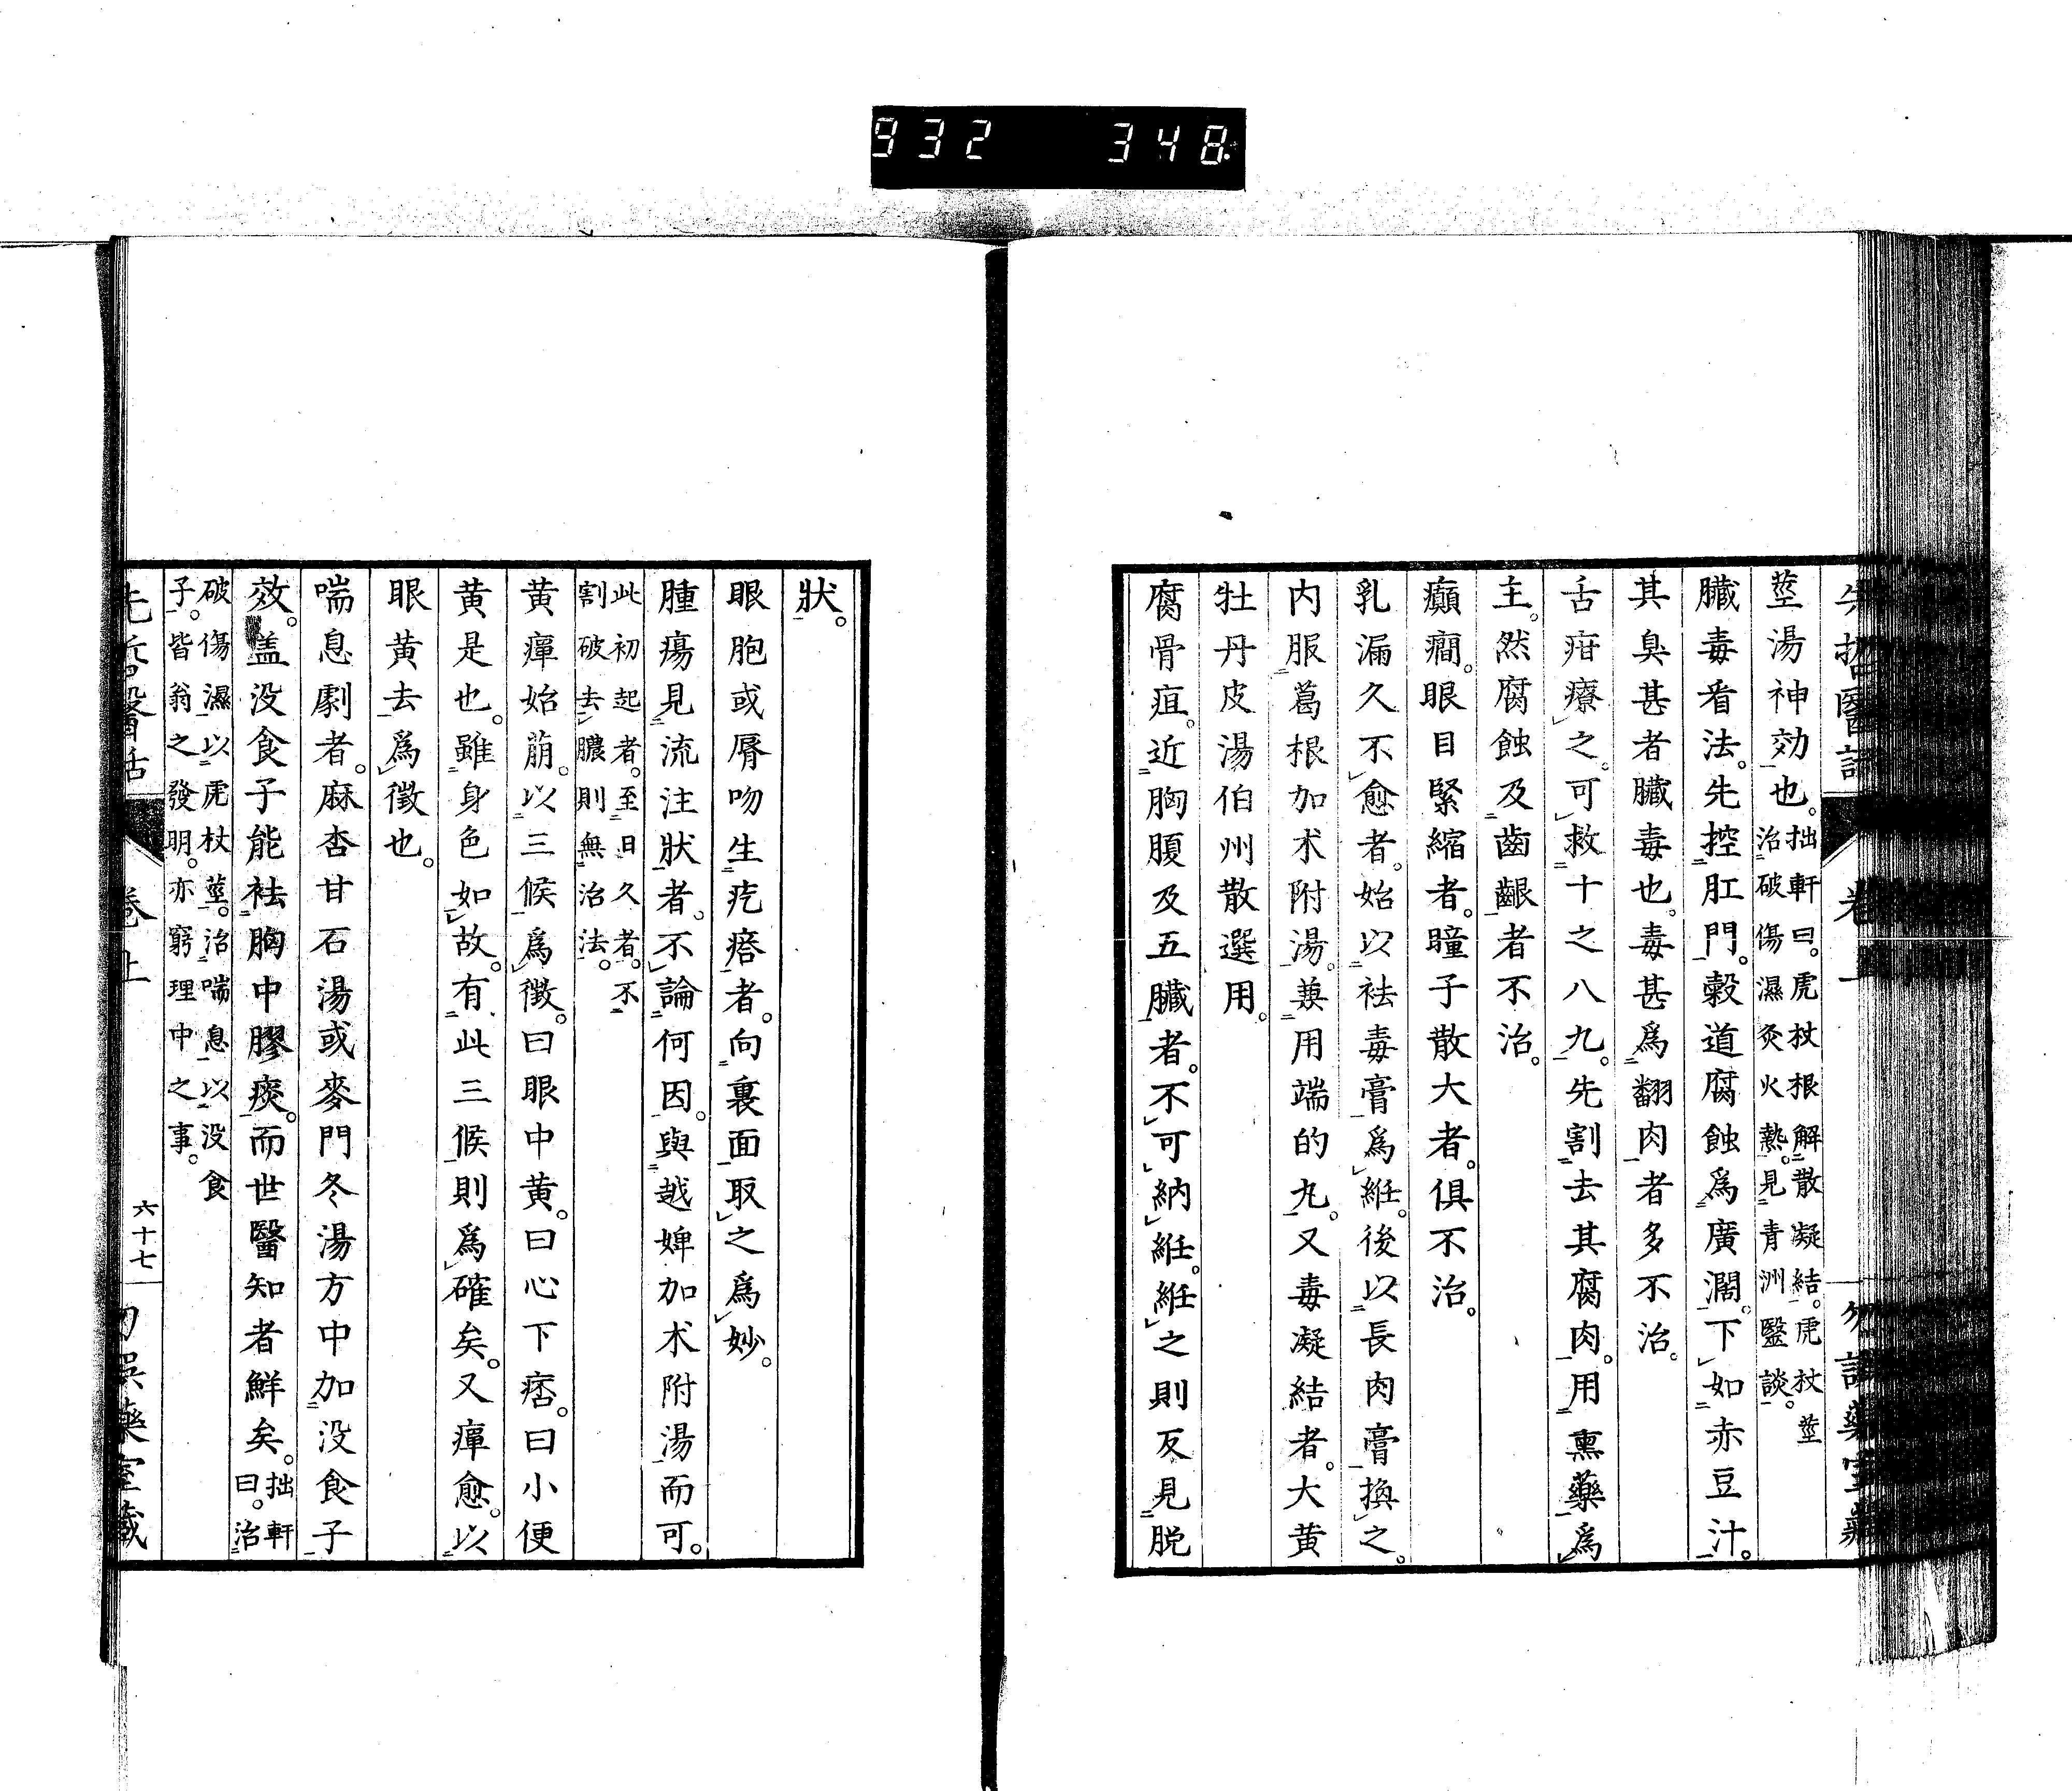 932 348
莖湯神効也。拙軒曰。虎杖根解散凝結。虎杖莖
治破傷濕灸火熱。見青洲醫談。
臟毒看法。先控肛門。穀道腐蝕爲廣濶。下如赤豆汁。
其臭甚者臟毒也。毒甚爲翻肉者多不治。
舌疳療之。可救十之八九。先割去其腐肉。用熏藥爲
主。然腐蝕及齒齦者不治。
癲癇。眼目緊縮者。瞳子散大者。俱不治。
乳漏久不愈者。始以袪毒膏爲絍。後以長肉膏換之。
内服葛根加朮附湯。兼用端的丸。又毒凝結者。大黄
牡丹皮湯伯州散選用。
腐骨疽。近胸腹及五臟者。不可納絍。絍之則反見脱
狀。
眼胞或脣吻生疙瘩者。向裏面取之爲妙。
腫瘍見流注狀者。不論何因。與越婢加朮附湯而可。
此初起者。至日久者。不
割破去膿則無治法。
黄癉始萠。以三候爲徴。曰眼中黄。曰心下痞。曰小便
黄是也。雖身色如故。有此三候則爲確矣。又癉愈。以
眼黄去爲徴也。
喘息劇者。麻杏甘石湯或麥門冬湯方中加没食子
效。盖没食子能袪胸中膠痰。而世醫知者鮮矣。拙軒
曰。治
破傷濕以虎杖莖。治喘息以没食
子。皆翁之發明。亦窮理中之事。
卷上
六十七